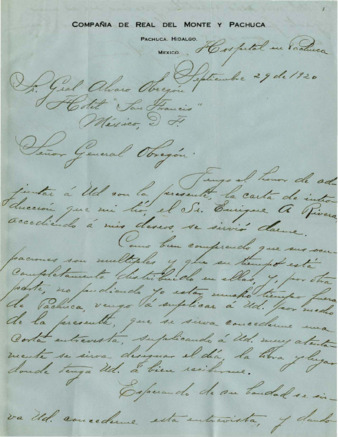 COMPAÑIA DE REAL DEL MONTE Y PACHUCA
PACHUCA, HIDALGO.
MEXICO
Hospital en Pachuca
Septiembre 29 de 1920
Sr. Gral Alvaro Obregón
Hotel "San Francis"
México, D. F.
Señor General Obregón:
Tengo el honor de ad
juntar á Ud con la presente, la carta de intro
ducción que mi tío, el Sr. Enrique A Rivera
accediendo á mis deseos, se sirvió darme.
Como bien comprendo que sus ocu
paciones son multiples y que su tiempo está
completamente en ellas y, por otra
parte, no pudiendo yo estar mucho tiempo fuera
de Pachuca, vengo á suplicar á Ud. por medio
de la presente, que se sirva concederme una
corta entrevista, suplicando á Ud. muy atenta
mente se sirva designar el día, la hora y lugar
donde tenga Ud. á bien recibirme.
Esperando de su bondad se sir
va Ud. concederme esta entrevista, y dando